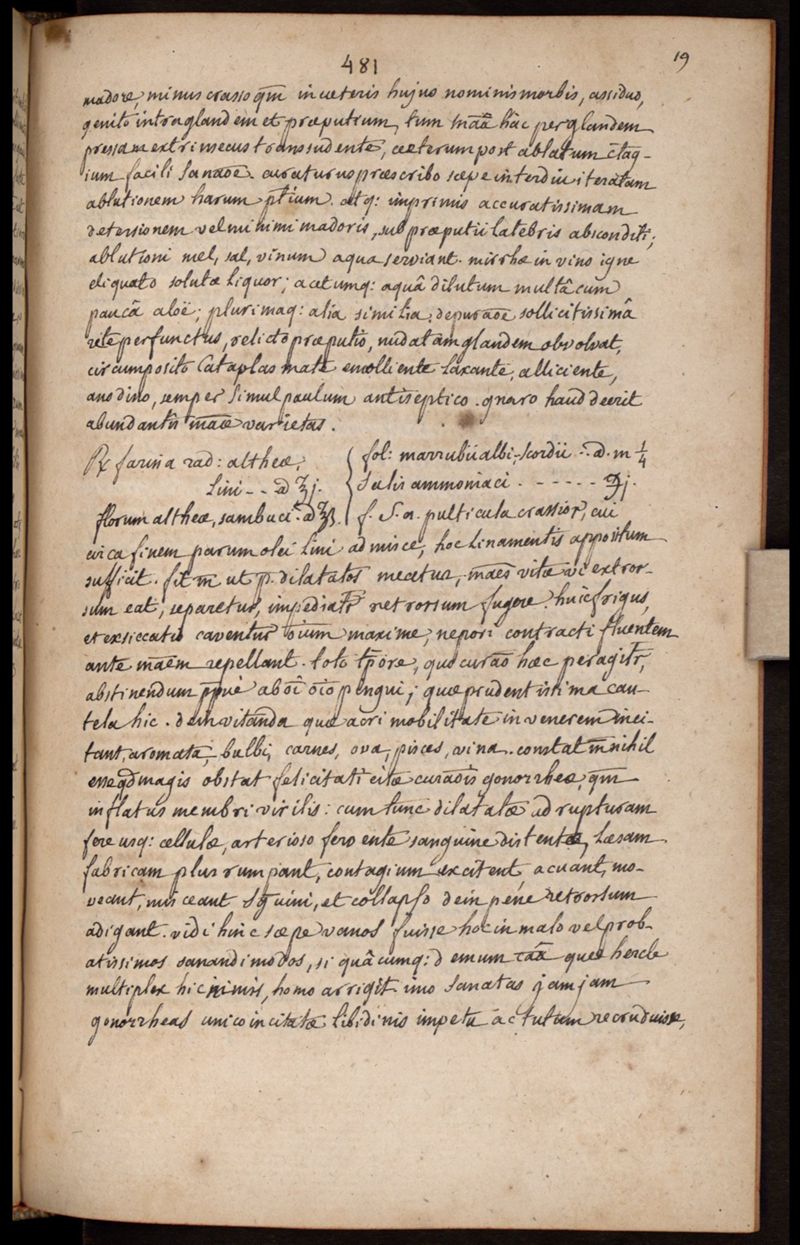 481
19
madore, minus crasso qm̄ in ceteris hujus nominis morbis, assiduo,
genitō intra glandem et præputium, tum māā hâc per glandem
pressam extrinsecus transsudente, cæterum post ablatum c̄tag-
ium facili sanāōē. curaturus præscribo sæpe interdiu iteratam
ablutionem harum p̄tium. atq: imprimis accuratissimam
detersionem vel minimi madoris, sub præputii latebris absconditi;
ablutioni mel, sal, vinum aqua serviant. mirrhæ in vino igne
eliquato solutæ liquor; acetumq: aquâ dilutum multâ cum
paucâ aloë; plurimaq: alia similia; depurāōē sollicitissimâ
ritē perfunctus, relictō præputiō, nudatam glandem obvolvat,
circumpositō Cataplasmatē emollientē laxantē, alliciente,
anodino, semper simul paulum antiseptico. gnaro haud deerit
abundantis māæ varietas.
℞ farina rad: altheæ,
Lini - - a̅ ℥j.
florum altheæ, sambuci. a̅ ℥β.
fol: marrubii albi, scordii -. a̅. m ¼
Salis ammoniaci - - - - - - ʒj.
f. S. a. pulticula crassior, cui
circa finem parum olei lini admisce, hoc linamentis appositum
sufficit. fit m̄ ut p. dilatatōs meatus, māēs vitæ vi extror-
sum eat, separetur, impediātr retrorsum fugere. huic frigus,
et exsiccatio caventur oīum maxime, ne pori contracti fluentem
ante māēm repellant. totō tp̄ore, quo curāō hæc peragitr,
abstinendum p̄p̄uè ab oī oīō pingui; quæ prudentissima cau-
tela hic. dein vitanda quæ acri mobilitatē in venerem inci-
tant, aromata, bulbi, carnes, ova, pisces, vina. constat m̄ nihil
esse qd̄ magis obstat felicitati citæ curāōīs gonorrheæ, qm̄
inflatus membri virilis: cum tunc dilatatæ ad rupturam
fere usq: cellulæ, arterioso fervente sanguine distentæ, læsam
fabricam plus rumpant, contagium excitent, acuant, mo-
veant, misceant sguini, et collapso dein pene retrorsum
adigant. vidi hinc sæpe vanos fuisse hoc in malo vel prob-
atissimos sanandi modos, si quâcumq: demum cāâ quæ hercle
multiplex hic nimis, homo arrigit. imo sanatas jamjam
gonorrheas unico incitatæ libidinis impetu actutum recruduisse,